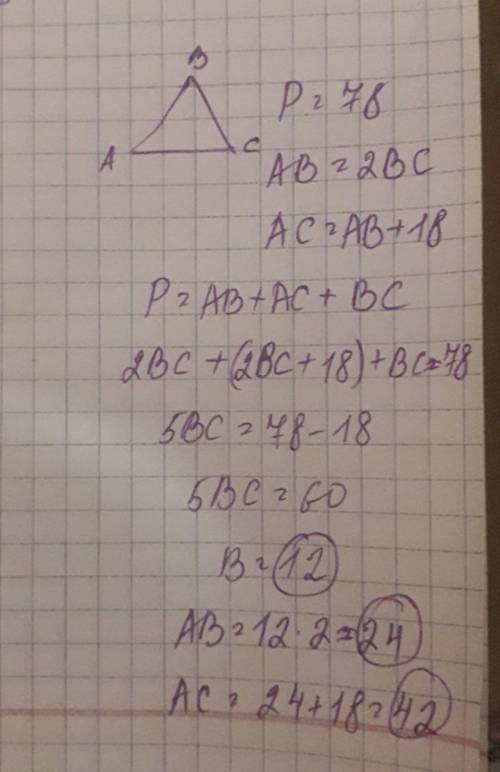 B
A C
P = 78
AB = 2BC
AC = AB + 18
P = AB + AC + BC
2BC + (2BC + 18) + BC = 78
5BC = 78 - 18
5BC = 60
B = 12
AB = 12 · 2 = 24
AC = 24 + 18 = 42